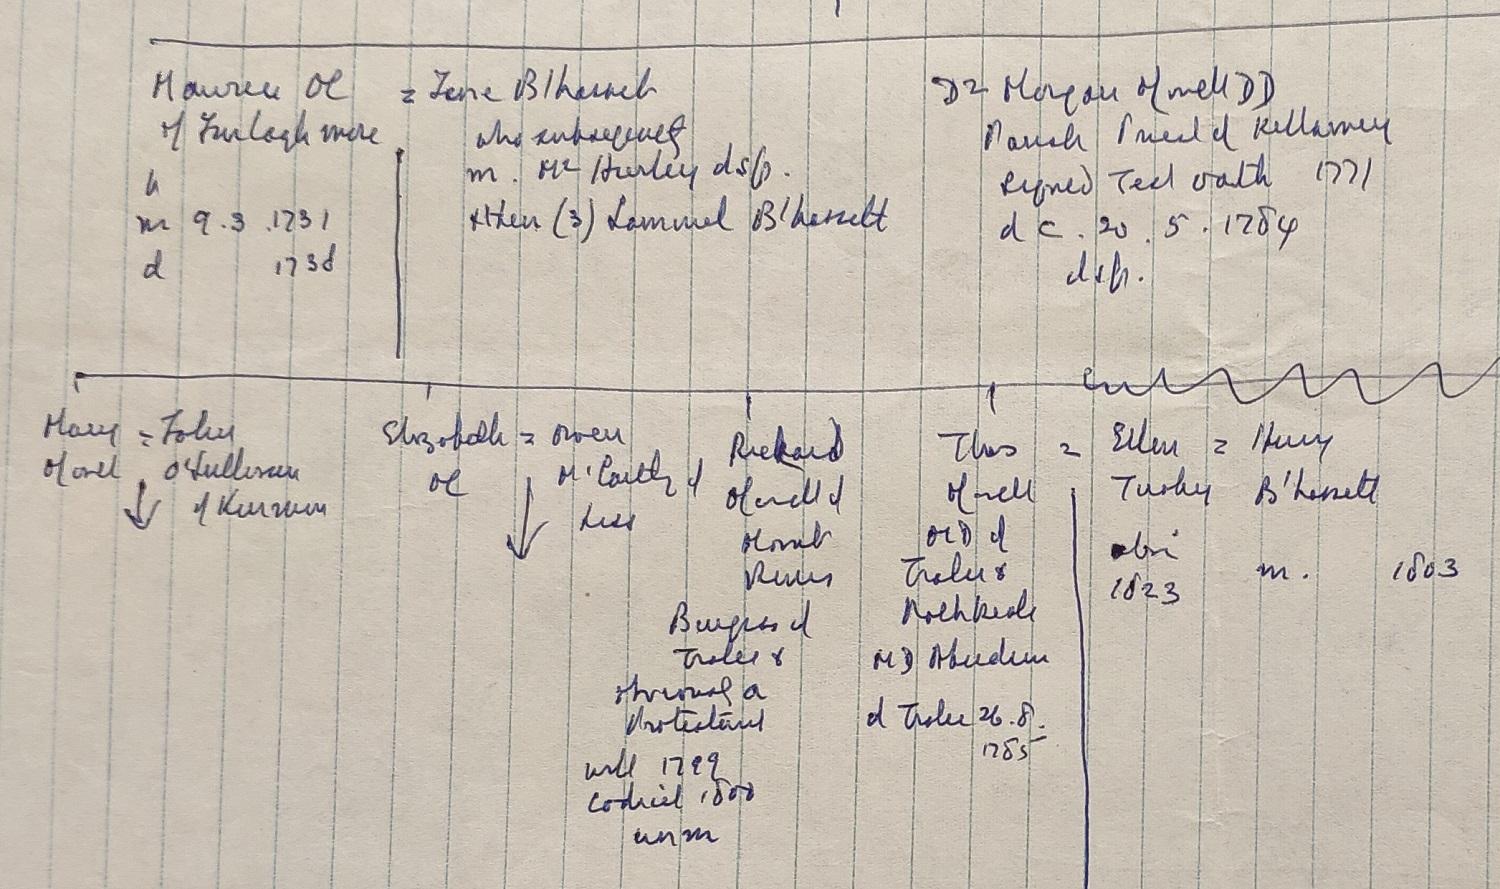 Maurice OC = Jane B'hassett
of Turlagh more who subsequently
m. Mr Hurley dsp.
b
m 9.3.1731 & then (3) Sammuel B'hassett
d 1738
Dr Morgan O'Connell DD
Parish Priest of Killarney
signed Test oath 1771
d c. 20.5.1784
dsp.
Mary = John
O'Connell O'Sullivan
of
Elizabeth = Owen
OC M'Carthy of
Liss
Richard
O'Connell of
Burgess of
Tralee &
a
Protestant
will 1799
Codicil 1800
unm
Thos = Ellen = Henry
O'Connell Tuohy B'hassett
MD of
Tralee &
Rathkeale
MD Aberdeen
d Tralee 26.8.
1785
1823
m. 1803